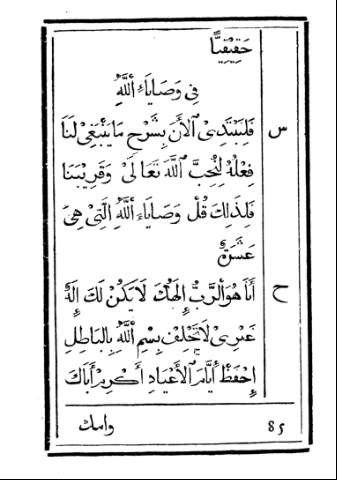 حَقِيْقِيًّا
فِى وَصَايَاءِ ٱللَّهِ
س فَلِيَبْتَدِىْ ٱلأَنَ بِشَرْحِ مَا يَنْبَغِىْ لَنَا
فِعْلُهُ لِنُحِبَّ ٱللَّهَ تَعَالَىْ وَقَرِيْبَنَا
فَلِذَلِكَ قُلْ وَصَايَاءِ ٱللَّهِ ٱلَّتِىْ هِىَ
عَشَرَةٌ
ح أَنَا هُوَ ٱلرَّبُّ إِلَهُكَ لَا يَكُنْ لَكَ إِلَهٌ
غَيْرِىْ لَا تَحْلِفْ بِسْمِ ٱللَّهِ بِالبَاطِلِ
إِحْفَظْ أَيَّامَ ٱلأَعْيَادِ أَكْرِمْ أَبَاكَ
وامك
85